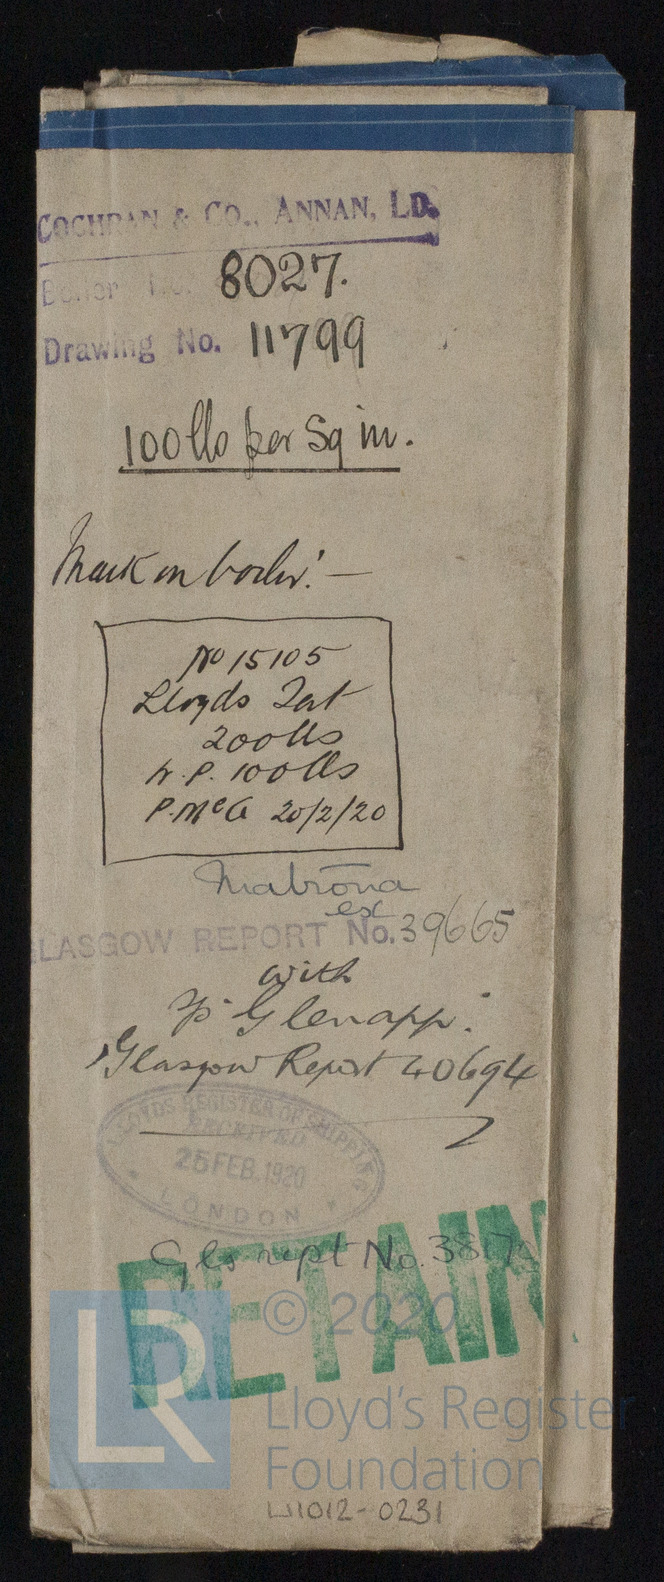 COCHRAN & CO., ANNAN, LD.
Boiler No. 8027.
Drawing No. 11799
100 lbs per Sq in.
Mark on boiler:-
No 15105
Lloyds Test
200 lbs
W.P. 100 lbs
P.McG 20/2/20
Matrōna
ex
GLASGOW REPORT No. 39665
with
Glenapp.
Glasgow Report 40694
LLOYDS REGISTER OF SHIPPING
RECEIVED
25 FEB. 1920
LONDON
Gls rept No.
RETAIN
© 2020
LR
Lloyd's Register
Foundation
LU1012-0231